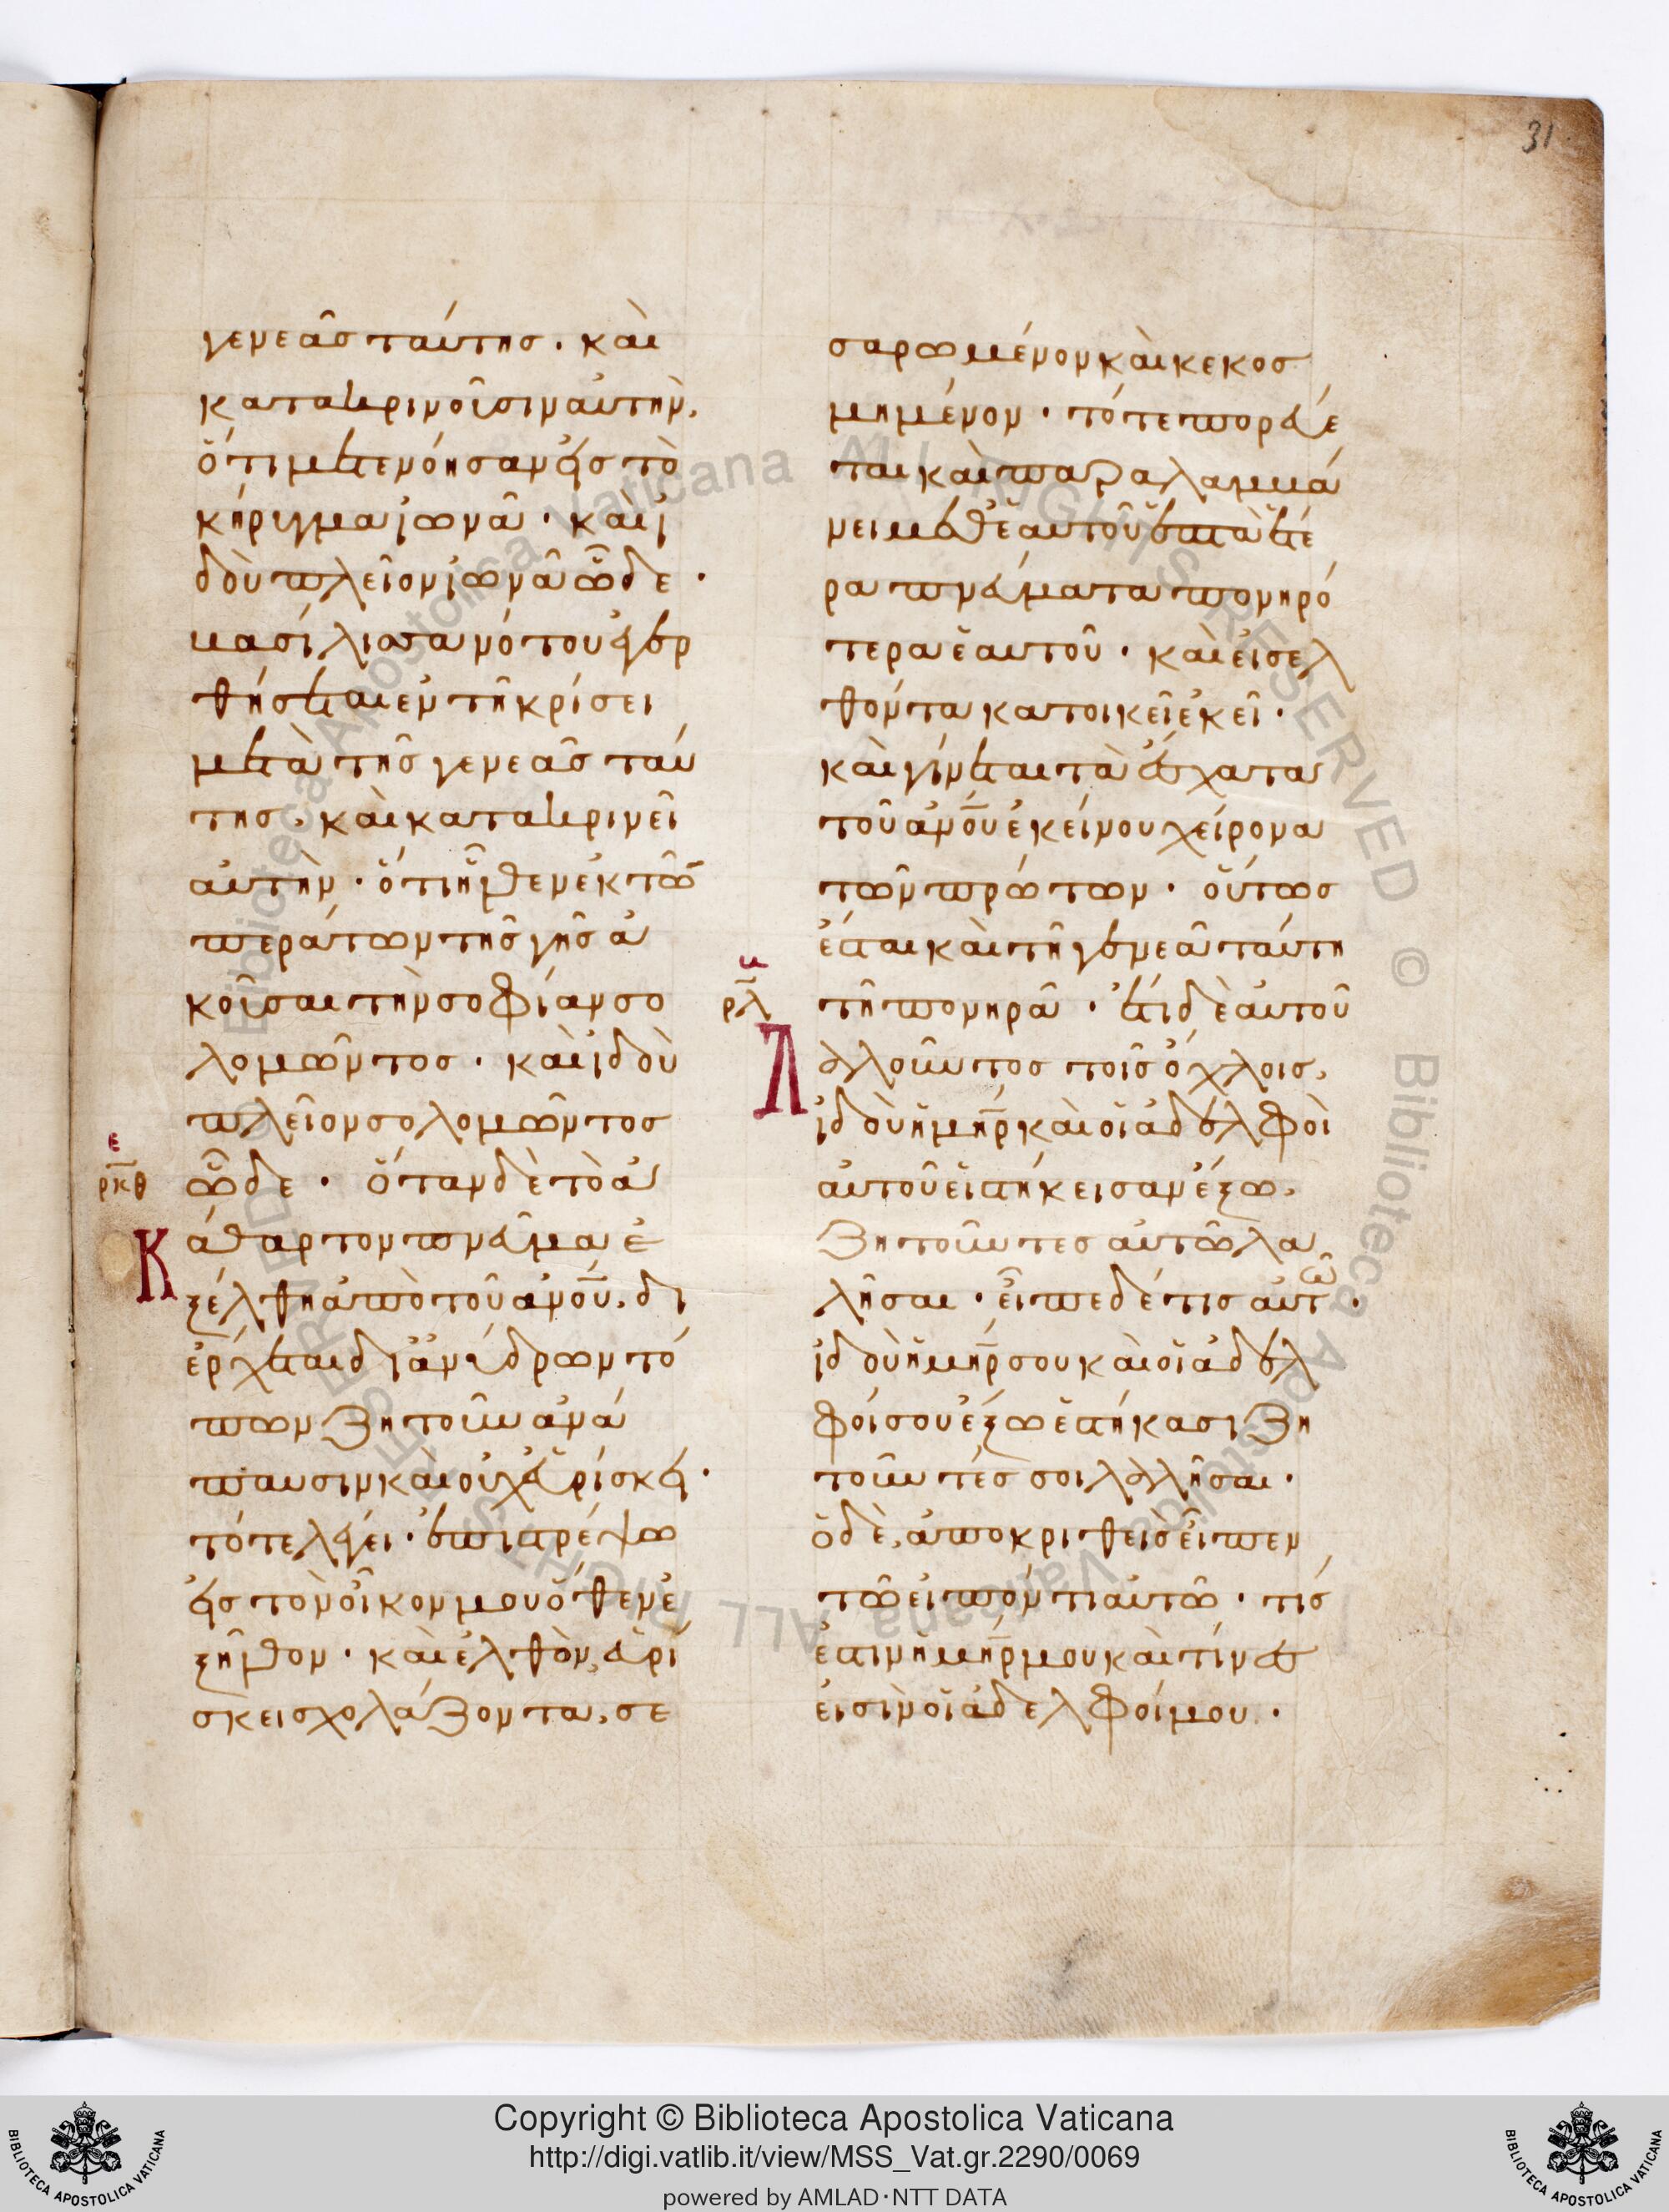 31
γενεᾶς ταύτης · καὶ
κατακρινοῦσιν αὐτήν,
ὅτι μετενόησαν εἰς τὸ
κήρυγμα ἰωνᾶ · καὶ ἰ
δοὺ πλεῖον ἰωνᾶ ὧδε ·
βασίλισσα νότου ἐγερ
θήσεται ἐν τῆ κρίσει
μετὰ τῆς γενεᾶς ταύ
της, καὶ κατακρινεῖ
αὐτὴν · ὅτι ἦλθεν ἐκ τῶ̅
περάτων τῆς γῆς ἀ
κοῦσαι τὴν σοφίαν σο
λομῶντος · καὶ ἰδοὺ
πλεῖον σολομῶντος
ε
ρκθ
ὧδε · ὅταν δὲ τὸ ἀ
Κ άθαρτον πνεῦμα ἐ
ξέλθη ἀπὸ τοῦ ἀνο̅υ̅, δι
έρχεται δι' ἀνύδρων τό
πων ζητοῦν ἀνά
παυσιν καὶ οὐχ εὑρίσκει ·
τότε λέγει · ἐπιστρέψω
εἰς τὸν οἶκον μου ὅθεν ἐ
ξῆλθον · καὶ ἐλθὸν, εὑρί
σκει σχολάζοντα, σε
σαρωμένον καὶ κεκοσ
μημένον · τότε πορεύε
ται καὶ παραλαμβά
νει μεθ' ἑαυτοῦ ἑπτὰ ἕτε
ρα πνεύματα πονηρό
τερα ἑαυτοῦ · καὶ εἰσελ
θόντα κατοικεῖ ἐκεῖ ·
καὶ γίνεται τὰ ἔσχατα
τοῦ ἀνο̅υ̅ ἐκείνου χείρονα
τῶν πρώτων · οὕτως
ἔσται καὶ τῆ γενεᾶ ταύτη
ρλ
τῆ πονηρᾶ · ἔτι δὲ αὐτοῦ
Λ αλοῦντος τοῖς ὄχλοις,
ἰδοὺ ἡ μη̅ρ καὶ οἱ ἀδελφοὶ
αὐτοῦ εἱστήκεισαν ἔξω,
ζητοῦντες αὐτῶ λα
λῆσαι · εἶπε δέ τις αὐτῶ ·
ἰδοὺ ἡ μη̅ρ σου καὶ οἱ ἀδελ
φοί σου ἔξω ἑστήκασι ζη
τοῦντές σοι λαλῆσαι ·
ὁ δὲ, ἀποκριθεὶς εἶπεν
τῶ εἰπόντι αὐτῶ · τίς
ἐστιν ἡ μη̅ρ μου καὶ τίνες
εἰσὶν οἱ ἀδελφοί μου ·
Copyright © Biblioteca Apostolica Vaticana
http://digi.vatlib.it/view/MSS_Vat.gr.2290/0069
powered by AMLAD·NTT DATA
BIBLIOTECA APOSTOLICA VATICANA
BIBLIOTECA APOSTOLICA VATICANA
Biblioteca Apostolica Vaticana ALL RIGHTS RESERVED © Biblioteca Apostolica Vaticana ALL RIGHTS RESERVED ©